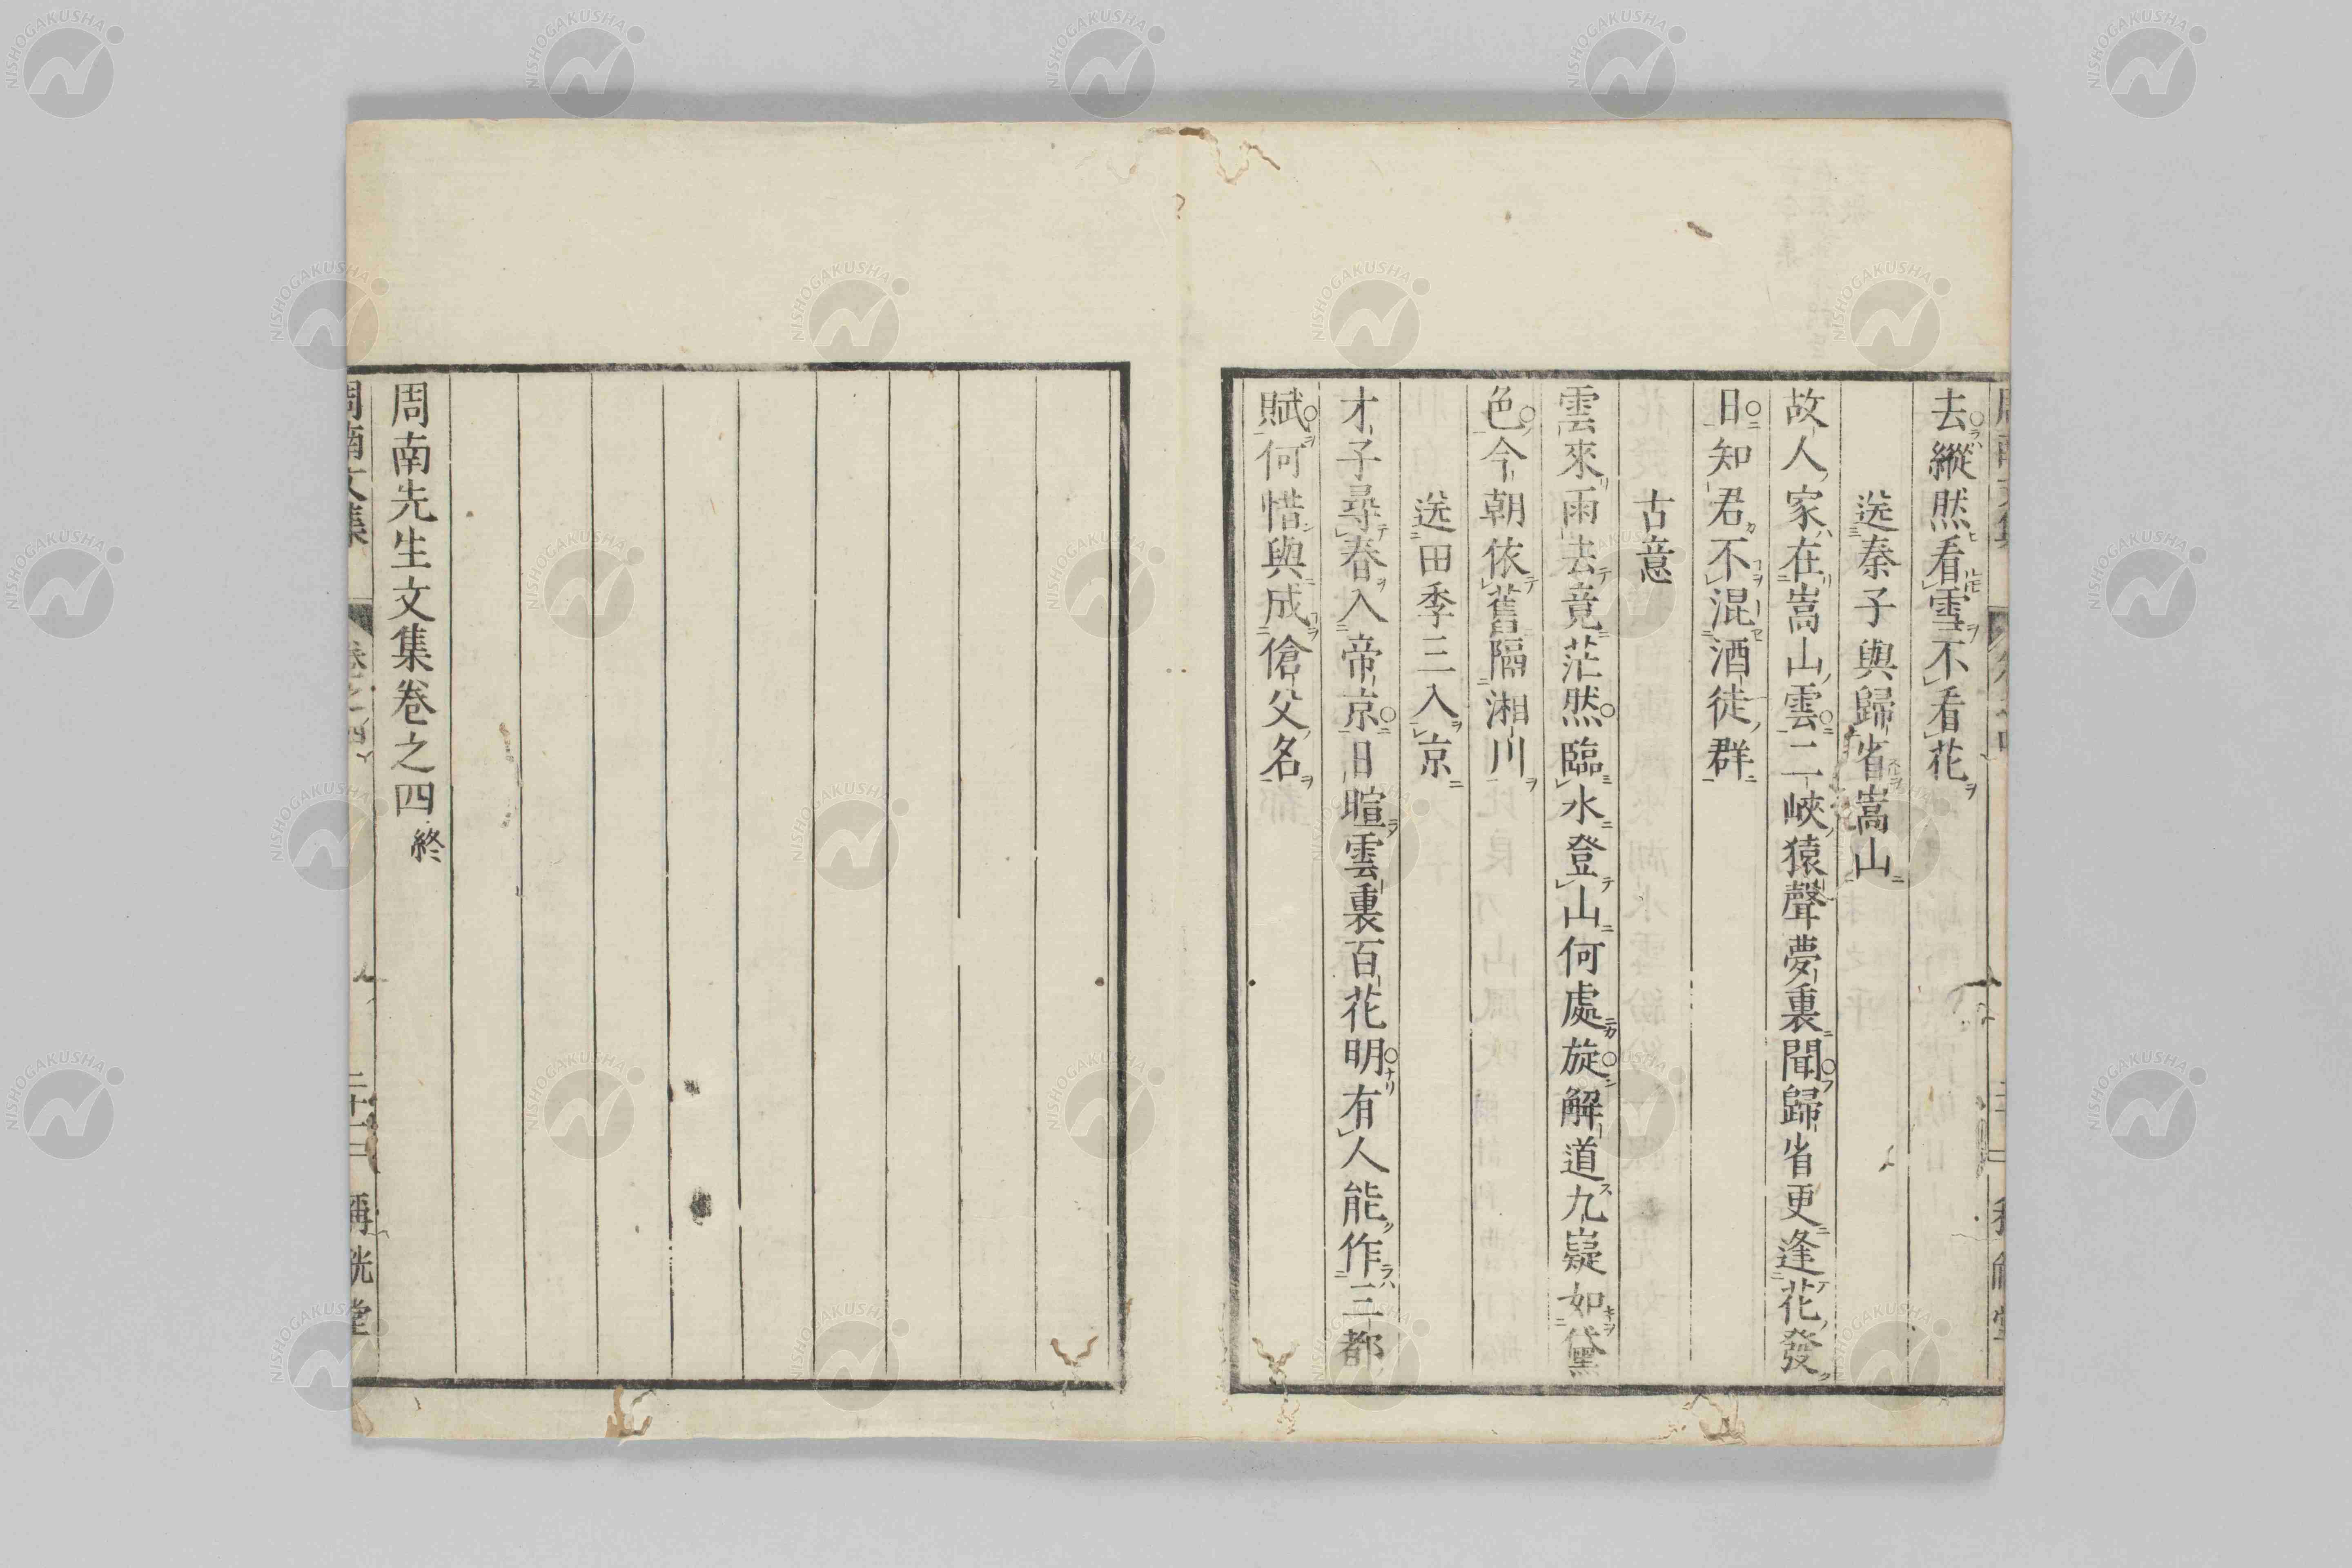 去縱然看雪不看花
送秦子與歸省嵩山
故人家在嵩山雲二峽猿聲夢裏聞歸省更逢花發
日知君不混酒徒群
古意
雲來雨去竟茫然臨水登山何處旋解道九嶷如黛
色今朝依舊隔湘川
送田季三入京
才子尋春入帝京日暄雲裏百花明有人能作三都
賦何惜與成傖父名
周南先生文集卷之四終
周南文集 卷之四 二十二 稱觥堂
NISHOGAKUSHA